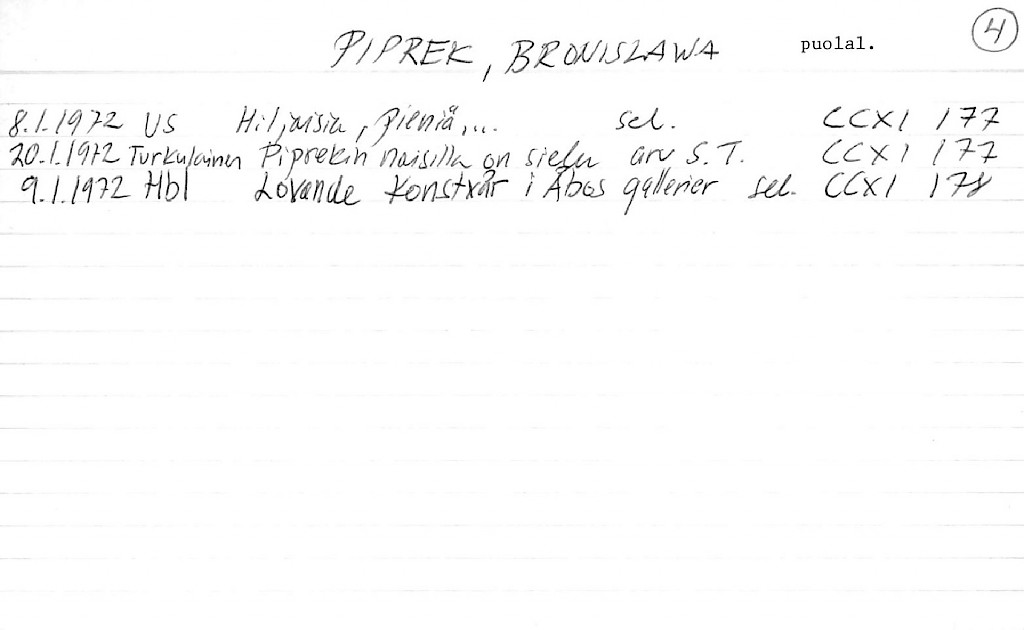 PIPREK, BRONISLAWA puolal. 4
8.1.1972 US Hiljaisia, pieniä,... sel. CCXI 177
20.1.1972 Turkulainen Piprekin naisilla on sielu arv S.T. CCXI 177
9.1.1972 Hbl Lovande konstvår i Åbos gallerier sel. CCXI 178